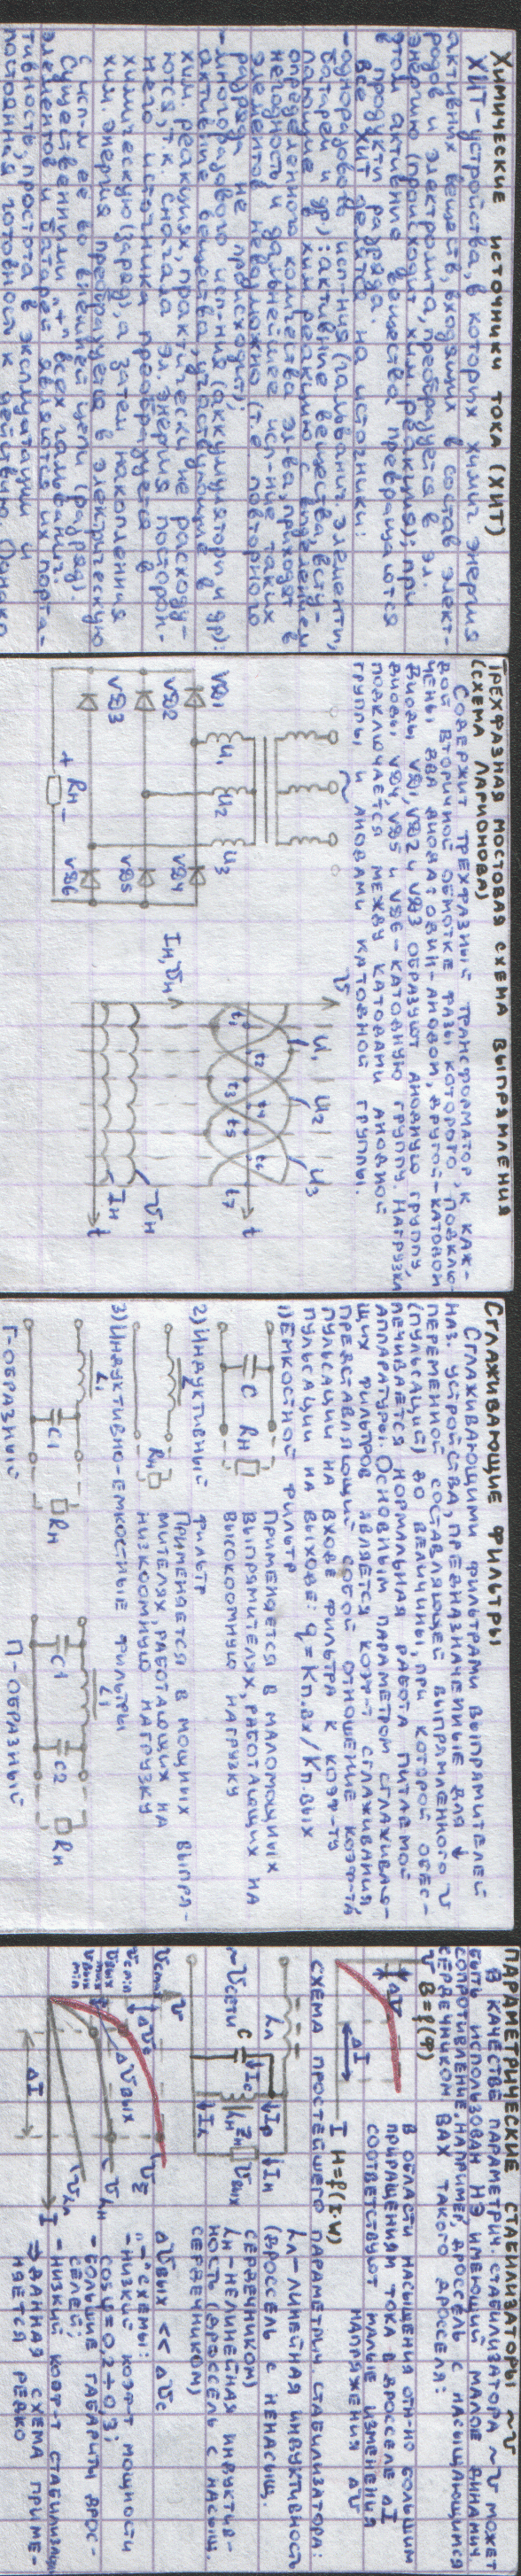 Химические источники тока (ХИТ)
ХИТ-устройства, в которых химич. энергия
активных веществ, входящих в состав элект-
родов и электролита, преобразуется в эл.
энергию (происходит хим. реакция); при
этом активные вещества превращаются
в продукты разряда.
Все ХИТ делят на источники:
-одноразового исп-ния (гальванич. элементы,
батареи и др): активные вещества, всту-
пающие в хим. реакцию с выделением
определенного количества эл-ва, приходят в
негодность и дальнейшее исп-ние таких
элементов невозможно (т.е повторного
разряда не происходит);
-многоразового исп-ния (аккумуляторы и др):
активные вещества, участвующие в
хим. реакциях, практически не расходу-
ются, т.к. сначала эл. энергия посторон-
него источника преобразуется в
химическую (заряд), а затем накопленная
хим. энергия преобразуется в электрическую
с исп-м её во внешней цепи (разряд).
Существенными "+" всех гальванич.
элементов и батарей являются их порта-
тивность, простота в эксплуатации и
постоянная готовность к действию. Однако
ТРЕХФАЗНАЯ МОСТОВАЯ СХЕМА ВЫПРЯМЛЕНИЯ
(СХЕМА ЛАРИОНОВА)
Содержит трехфазный трансформатор, к каж-
дой вторичной обмотке фазы которого подклю-
чены два диода: один-анодом, другой-катодом
Диоды VD1, VD2 и VD3 образуют анодную группу,
диоды VD4, VD5 и VD6-катодную группу. Нагрузка
подключается между катодами анодной
группы и анодами катодной группы.
~
U1 U2 U3
VD1 VD4
VD2 VD5
VD3 VD6
+ Rн -
U U1 U2 U3
t1 t2 t3 t4 t5 t6 t7 t
Iн, Uн
Uн
Iн
t
СГЛАЖИВАЮЩИЕ ФИЛЬТРЫ
Сглаживающими фильтрами выпрямителей
наз. устройства, предназначенные для ↓
переменной составляющей выпрямленного U
(пульсаций) до величины, при которой обес-
печивается нормальная работа питаемой
аппаратуры. Основным параметром сглаживаю-
щих фильтров является коэф-т сглаживания,
представляющий собой отношение коэф-та
пульсации на входе фильтра к коэф-ту
пульсации на выходе: q = Kп.вх/Kп.вых
1) Емкостной фильтр
C Rн
Применяется в маломощных
выпрямителях, работающих на
высокоомную нагрузку
2) Индуктивный фильтр
L Rн
Применяется в мощных выпря-
мителях, работающих на
низкоомную нагрузку
3) Индуктивно-емкостные фильтры
L1 C1 Rн
L1 C1 C2 Rн
Г-ОБРАЗНЫЙ П-ОБРАЗНЫЙ
ПАРАМЕТРИЧЕСКИЕ СТАБИЛИЗАТОРЫ ~U
В качестве параметрич. стабилизатора ~U может
быть использован НЭ, имеющий малое динамич
сопротивление, например, дроссель с насыщающимся
сердечником. ВАХ такого дросселя:
U B=f(Ф)
ΔU
ΔI
I H=f(I·W)
В области насыщения отн-но большим
приращениям тока в дросселе ΔI
соответствуют малые изменения
напряжения ΔU
СХЕМА простейшего параметрич. стабилизатора:
Lл Iр Iн
~Uсети C Ic Lн Zн Uвых
IL
Lл-линейная индуктивность
(дроссель с ненасыщ.
сердечником)
Lн-нелинейная индуктив-
ность (дроссель с насыщ.
сердечником)
U
Uc max
Uc min
Uвых max
Uвых min
ΔUc
ΔUвых
UΣ
ULн
ULл
I
ΔI
ΔUвых << ΔUс
"-" схемы:
-низкий коэф-т мощности
cosφ=0,2÷0,3;
-большие габариты дрос-
селей;
-низкий коэф-т стабилизации
⇒ данная схема приме-
няется редко